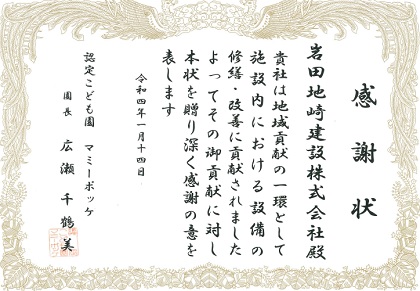 感謝状
岩田地崎建設株式会社殿
貴社は地域貢献の一環として
施設内における設備の
修繕・改善に貢献されました
よってその御貢献に対し
本状を贈り深く感謝の意を
表します
令和四年一月十四日
認定こども園 マミーポッケ
園長 広瀬千鶴美